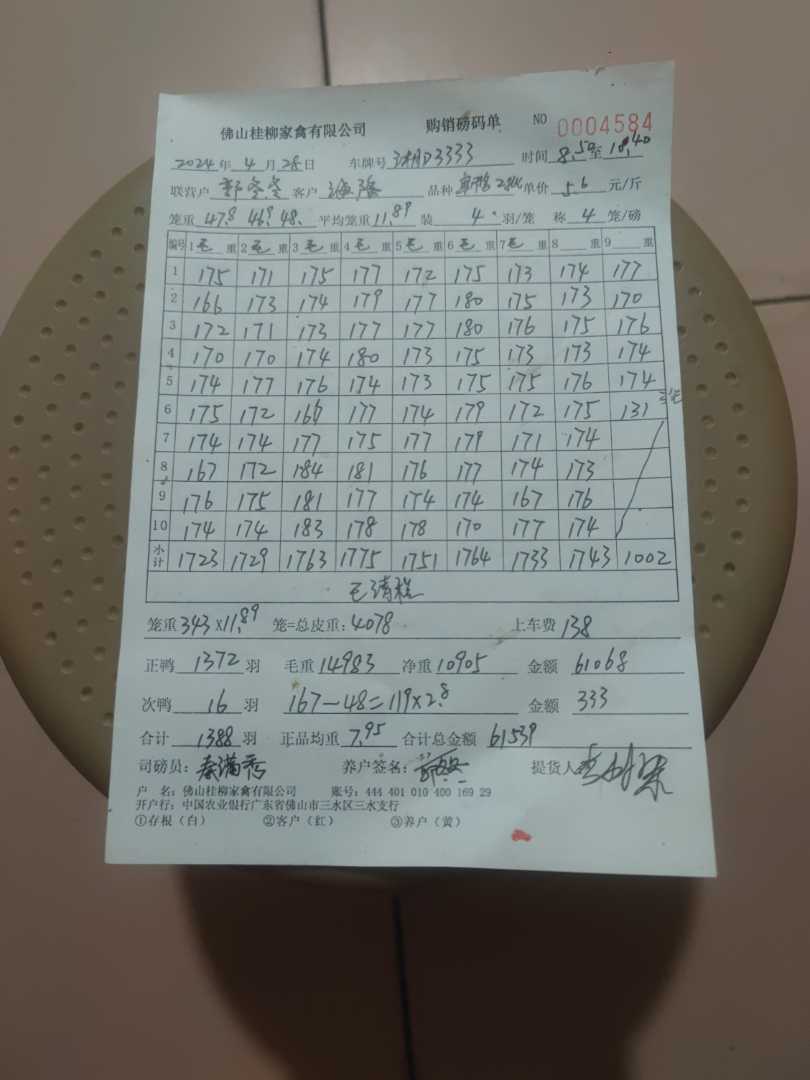 佛山桂柳家禽有限公司 购销磅码单 NO 0004584
2024年4月28日 车牌号 D3333 时间 8.50至18.40
联营户 客户 品种 单价 5.6 元/斤
笼重 47.8 46.9 48. 平均笼重 11.89 装 4 羽/笼 称 4 笼/磅
编号 1毛重 2毛重 3毛重 4毛重 5毛重 6毛重 7毛重 8 重 9 重
1 175 171 175 177 172 175 173 174 177
2 166 173 174 179 177 180 175 173 170
3 172 171 173 177 177 180 176 175 176
4 170 170 174 180 173 175 173 173 174
5 174 177 176 174 173 175 175 176 174
6 175 172 166 177 174 179 172 175 131 3笼
7 174 174 177 175 177 179 171 174
8 167 172 184 181 176 177 174 173
9 176 175 181 177 174 174 167 176
10 174 174 183 178 178 170 177 174
小计 1723 1729 1763 1775 1751 1764 1733 1743 1002
笼重 343×11.89 笼=总皮重:4078 上车费 138
正鸭 1372 羽 毛重 14983 净重 10905 金额 61068
次鸭 16 羽 167-48=119×2.8 金额 333
合计 1388 羽 正品均重 7.95 合计总金额 61539
司磅员:秦满秀 养户签名: 提货人
户 名:佛山桂柳家禽有限公司 账号:444 401 010 400 169 29
开户行:中国农业银行广东省佛山市三水区三水支行
①存根(白) ②客户(红) ③养户(黄)